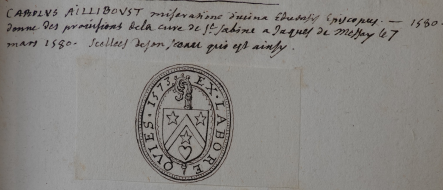 CAROLVS AILLIBOVST miseratione divina Eduensis Episcopus. — 1580.
donne des provisions de la cure de Ste Sabine a Jaques de Messey le 7
mars 1580. Scellees de son sceau qui est ainsy.
EX · LABORE · QVIES · 1573